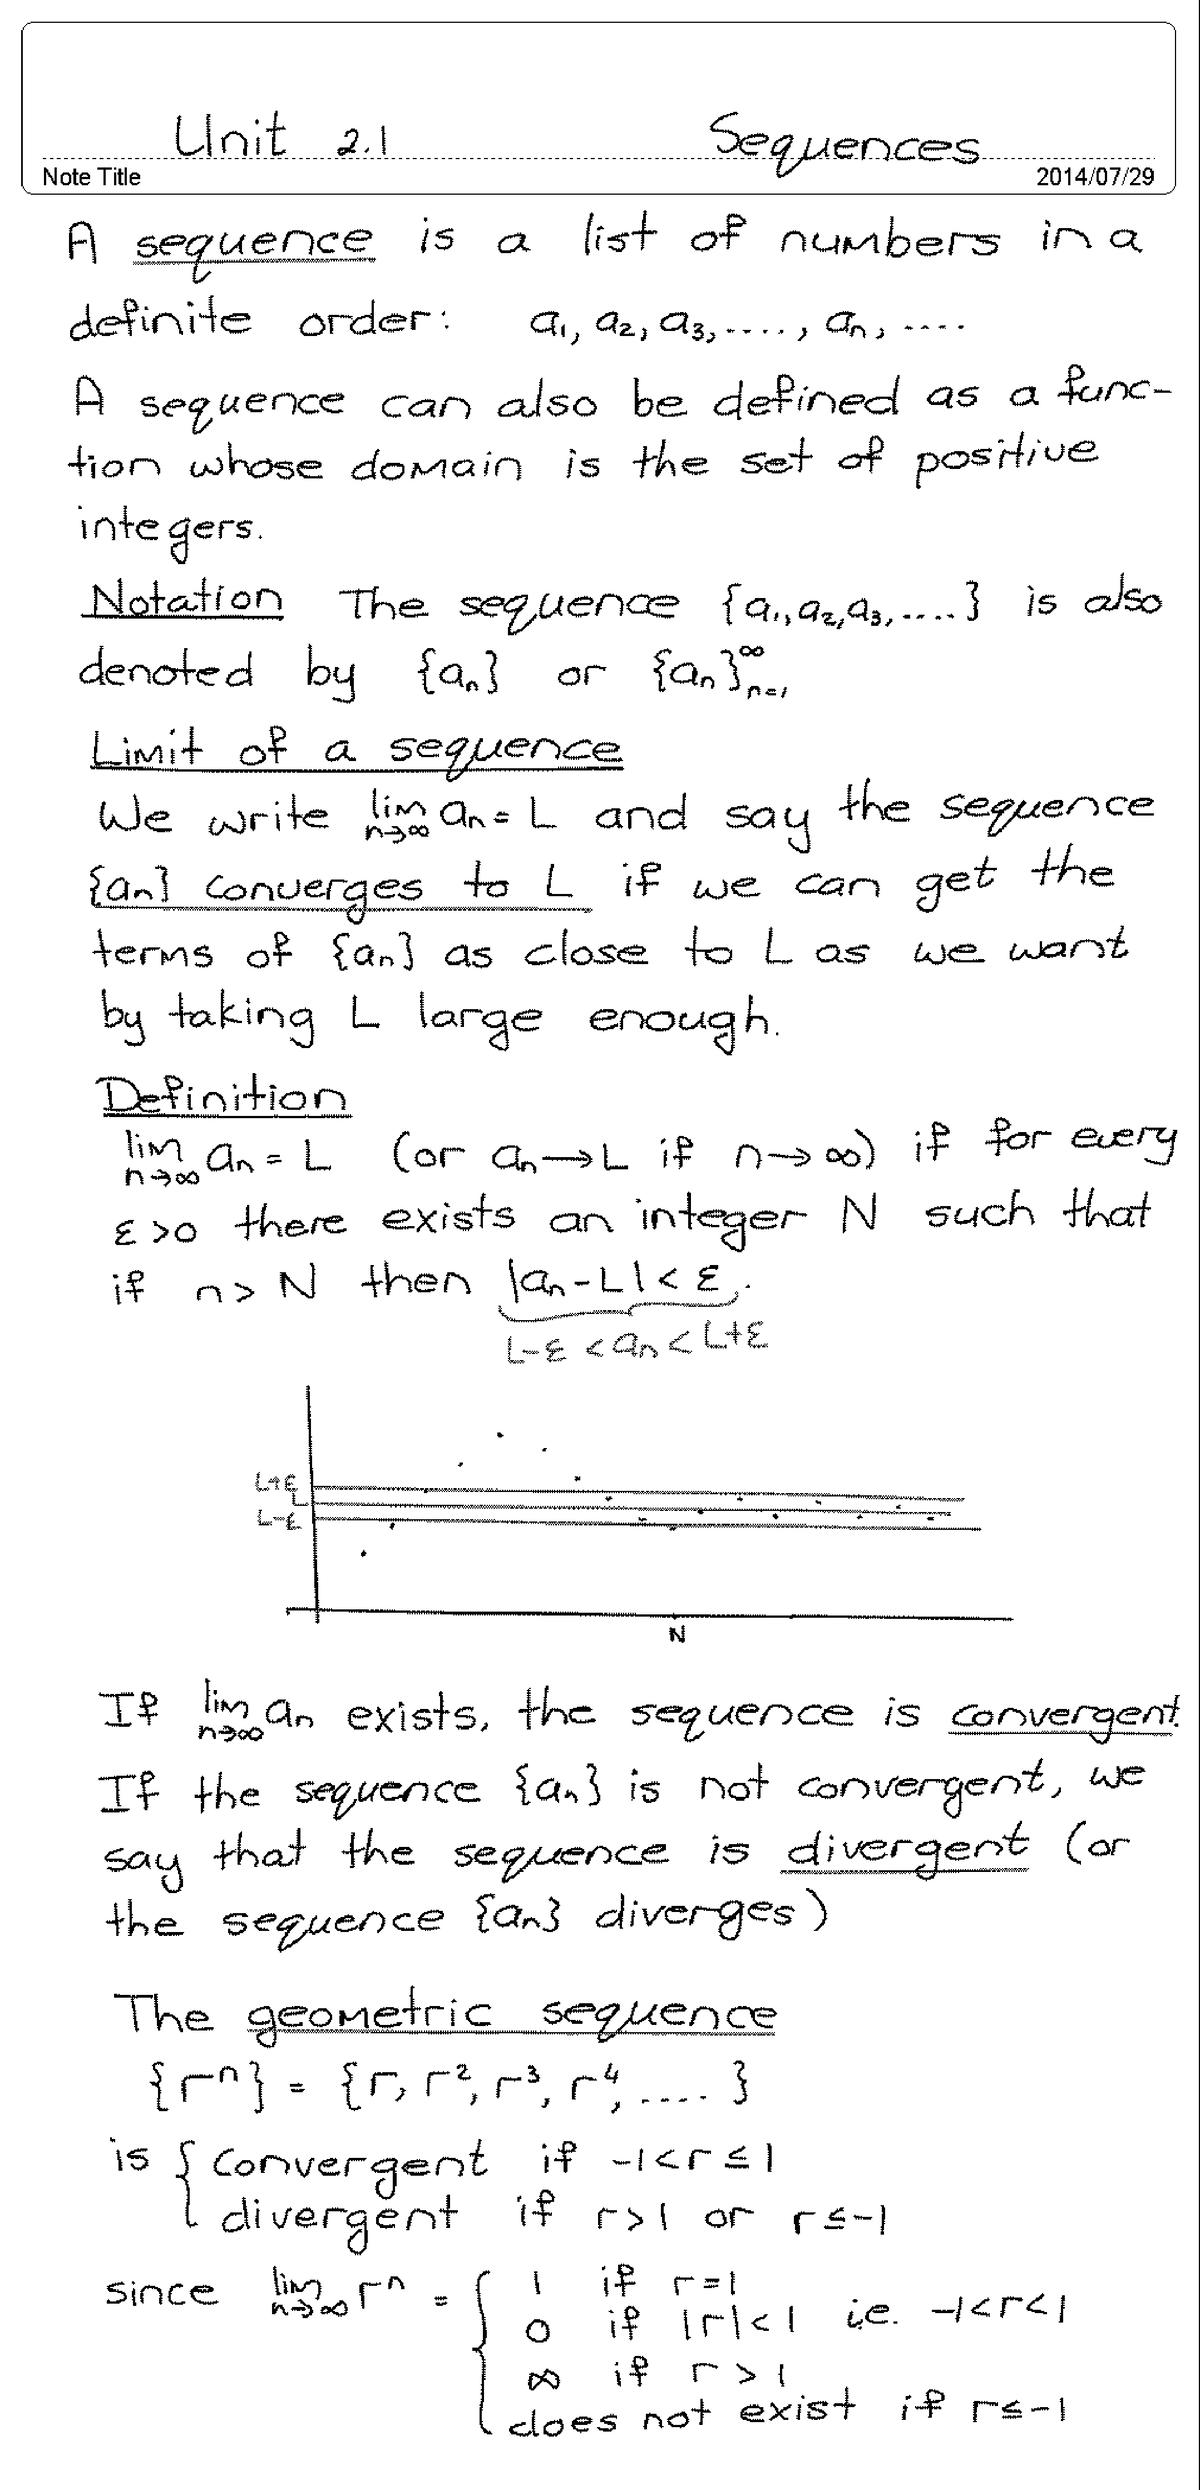 Unit 2.1 Sequences
Note Title 2014/07/29
A sequence is a list of numbers in a
definite order: a₁, a₂, a₃, ...., aₙ, ....
A sequence can also be defined as a func-
tion whose domain is the set of positive
integers.
Notation The sequence {a₁, a₂, a₃, ....} is also
denoted by {aₙ} or {aₙ}^∞_{n=1}
Limit of a sequence
We write lim_{n→∞} aₙ = L and say the sequence
{aₙ} converges to L if we can get the
terms of {aₙ} as close to L as we want
by taking L large enough.
Definition
lim_{n→∞} aₙ = L (or aₙ → L if n → ∞) if for every
ε > 0 there exists an integer N such that
if n > N then |aₙ - L| < ε.
L-ε < aₙ < L+ε
L+ε
L
L-ε
N
If lim_{n→∞} aₙ exists, the sequence is convergent.
If the sequence {aₙ} is not convergent, we
say that the sequence is divergent (or
the sequence {aₙ} diverges)
The geometric sequence
{rⁿ} = {r, r², r³, r⁴, .... }
is { convergent if -1 < r ≤ 1
divergent if r > 1 or r ≤ -1
since lim_{n→∞} rⁿ = { 1 if r = 1
0 if |r| < 1 i.e. -1 < r < 1
∞ if r > 1
does not exist if r ≤ -1